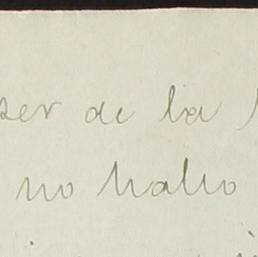 ser de la
no hallo